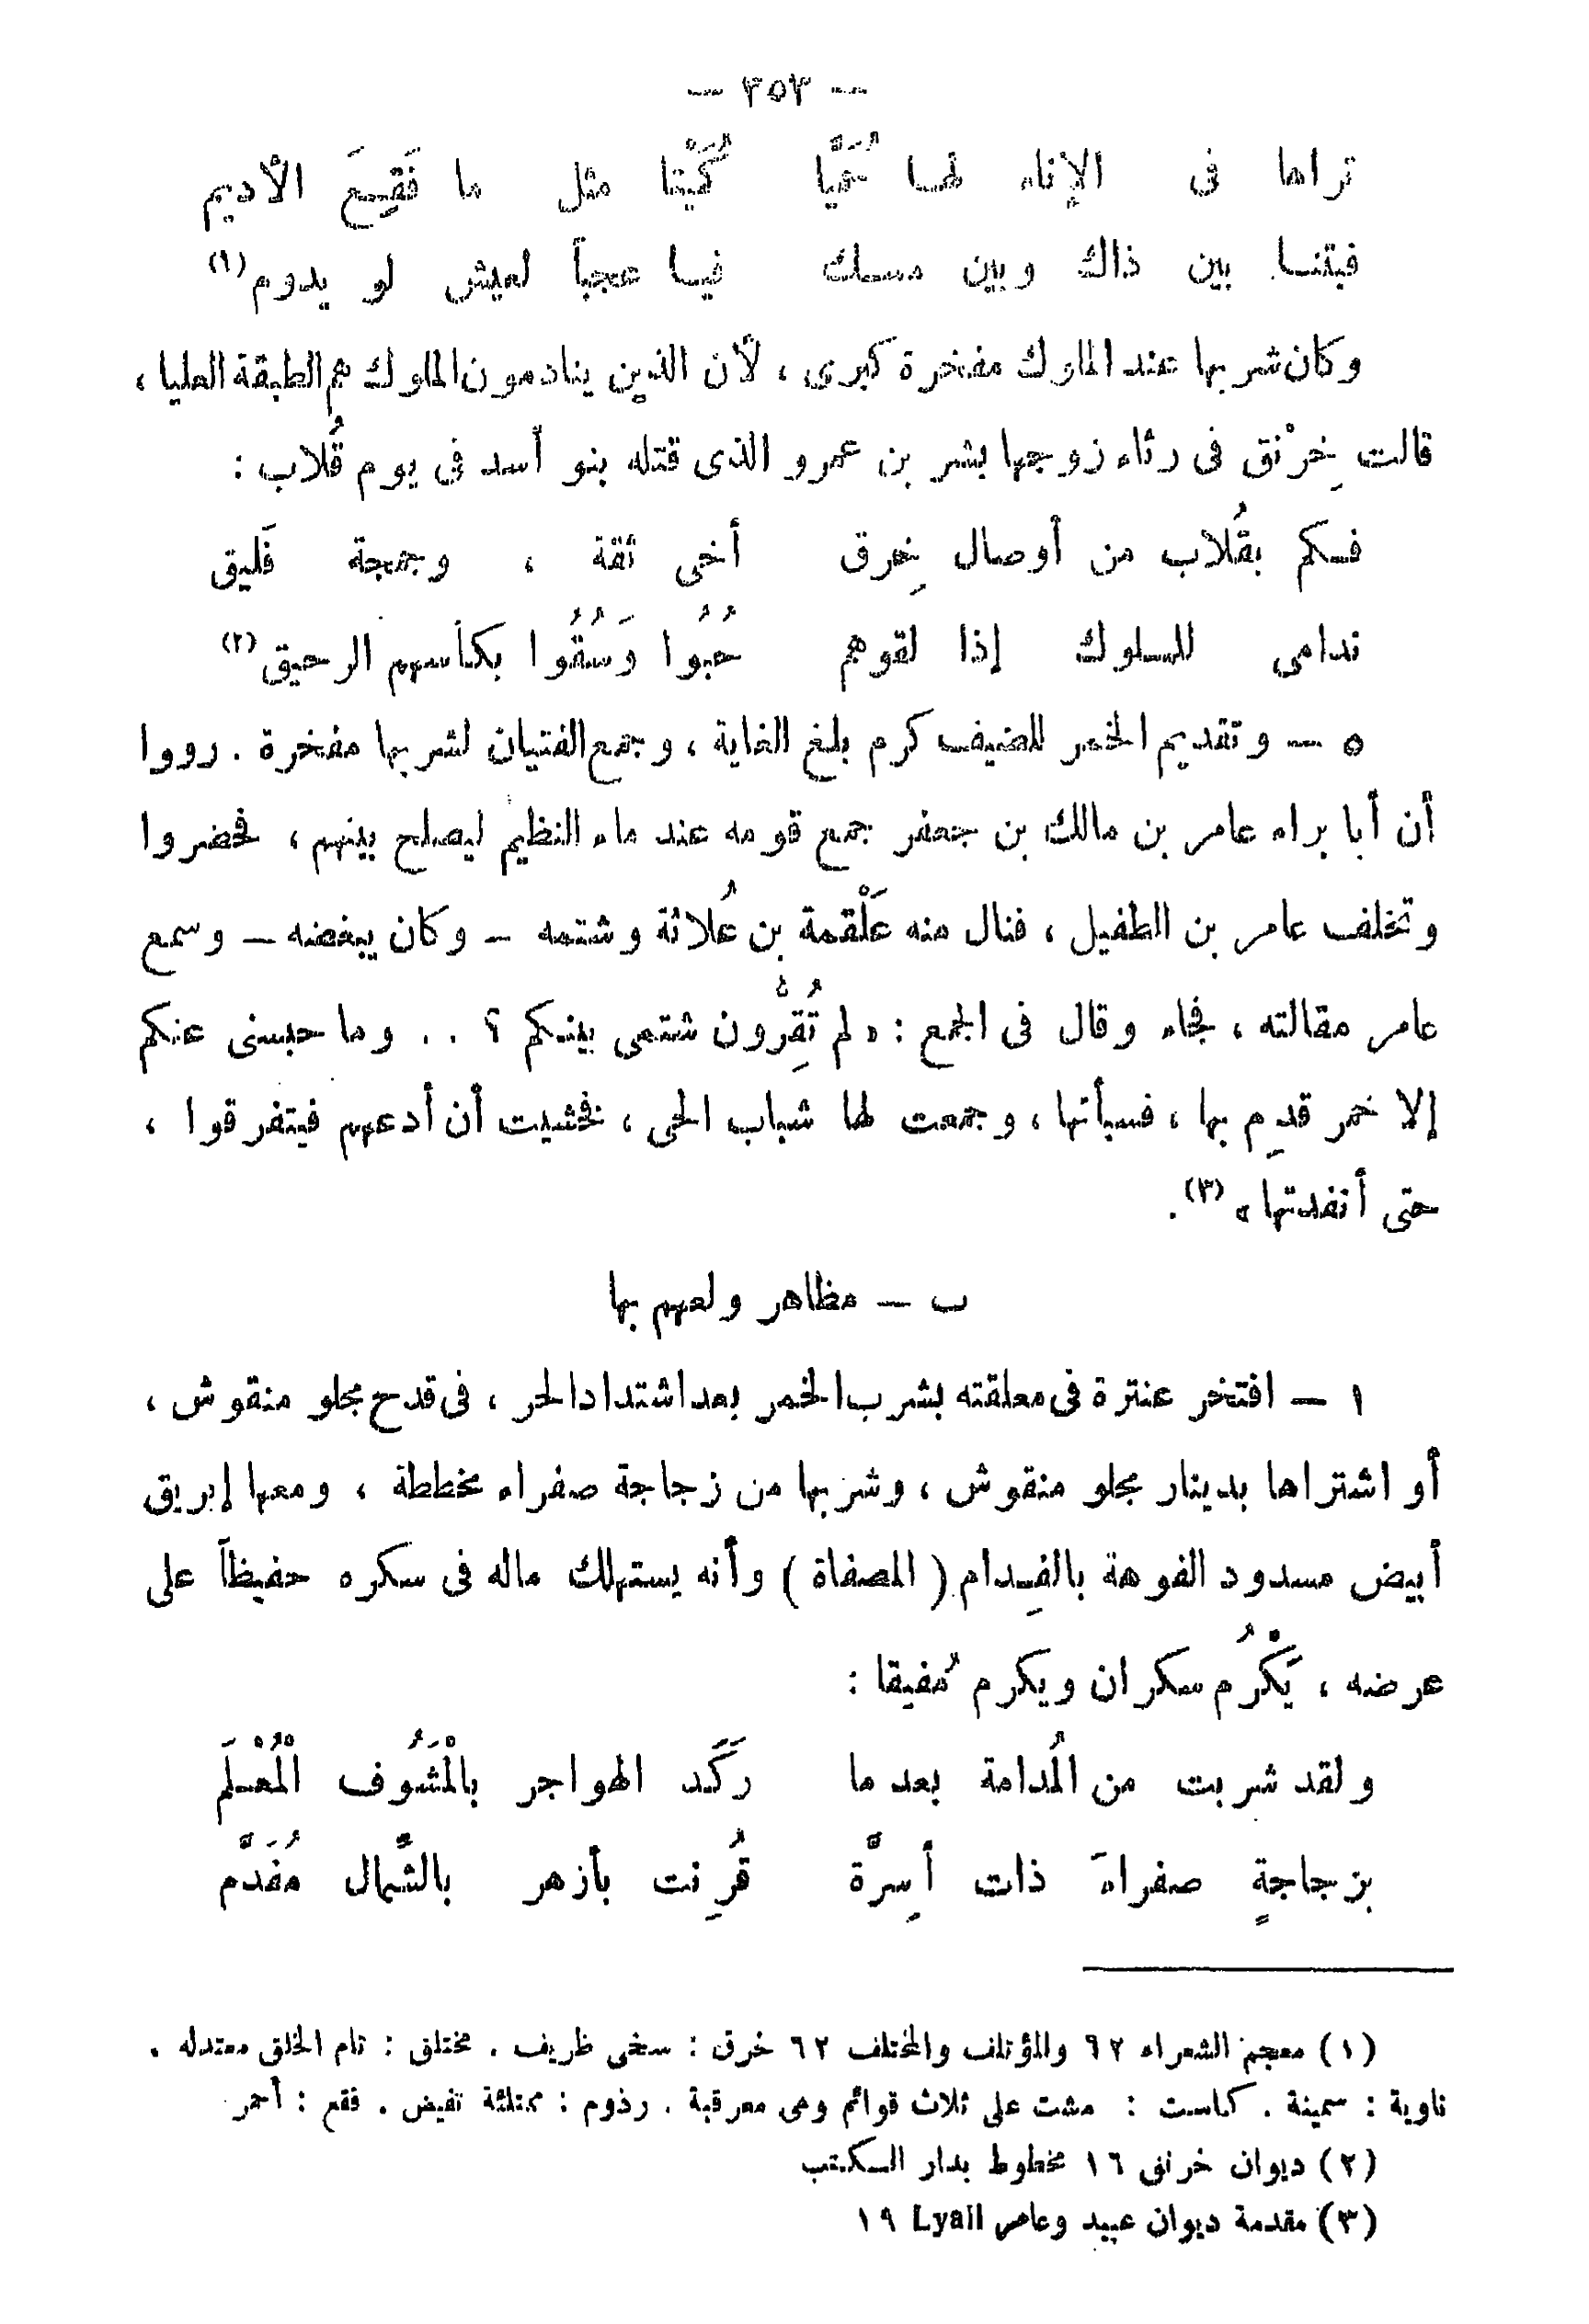 — ٣٥٣ —
تراها فى الإناء لها حُمَيَّا كُمَيْتا مثل ما فَقِعَ الأديم
فبتنا بين ذاك وبين مسك فيا عجباً لعيش لو يدوم (١)
وكان شربها عند الملوك مفخرة كبرى ، لأن الذين ينادمون الملوك هم الطبقة العليا ،
قالت خِرْنق فى رثاء زوجها بشر بن عمرو الذى قتله بنو أسد فى يوم قُلاب :
فكم بقُلاب من أوصال خِرق أخى ثقة ، وجمجمة فَليق
ندامى للملوك إذا لقوهم حُبُوا وَسُقُوا بكأسهم الرحيق (٢)
٥ — وتقديم الخمر للضيف كرم بلغ الغاية ، وجمع الفتيان لشربها مفخرة . رووا
أن أبا براء عامر بن مالك بن جعفر جمع قومه عند ماء النظيم ليصلح بينهم ، فحضروا
وتخلف عامر بن الطفيل ، فنال منه عَلْقمة بن عُلاثة وشتمه — وكان يبغضه — وسمع
عامر مقالته ، فجاء وقال فى الجمع : « لم تُقِرُّون شتمى بينكم ؟ . . وما حبسنى عنكم
إلا خمر قدِم بها ، فسبأتها ، وجمعت لها شباب الحى ، فخشيت أن أدعهم فيتفرقوا ،
حتى أنفدتها » (٣) .
ب — مظاهر ولعهم بها
١ — افتخر عنترة فى معلقته بشرب الخمر بعد اشتداد الحر ، فى قدح مجلو منقوش ،
أو اشتراها بدينار مجلو منقوش ، وشربها من زجاجة صفراء مخططة ، ومعها إبريق
أبيض مسدود الفوهة بالفِدام ( المصفاة ) وأنه يستهلك ماله فى سكره حفيظاً على
عرضه ، يَكْرُم سكران ويكرم مُفيقا :
ولقد شربت من المُدامة بعد ما رَكَد الهواجر بالْمَشُوف الْمُعْلَم
بزجاجةٍ صفراءَ ذات أسِرَّة قُرِنت بأزهر بالشِّمال مُفَدَّم
(١) معجم الشعراء ٩٢ والمؤتلف والمختلف ٦٢ خرق : سخى ظريف . مختلق : تام الخلق معتدله .
ناوية : سمينة . كاست : مشت على ثلاث قوائم وهى معرقبة . رذوم : ممتلئة تفيض . فقع : أحمر
(٢) ديوان خرنق ١٦ مخطوط بدار الكتب
(٣) مقدمة ديوان عبيد وعامر Lyall ١٩